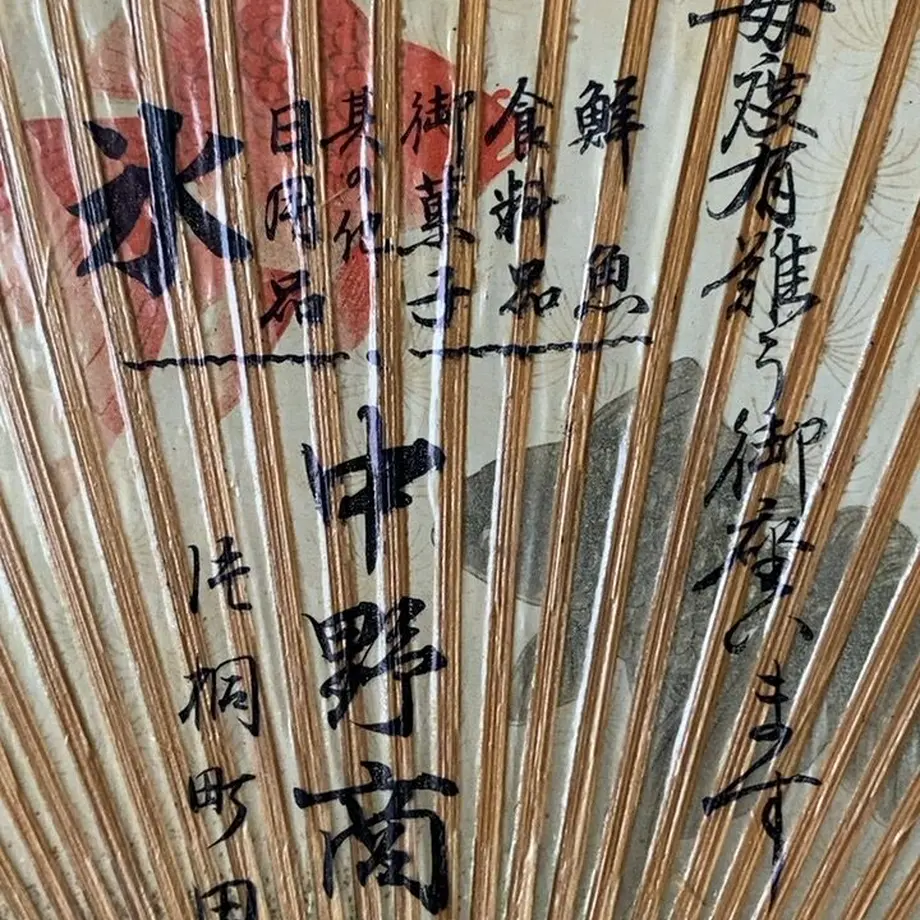 毎度有難う御座います
鮮魚
食料品
御菓子
其の他
日用品
氷
中野商
桐町田